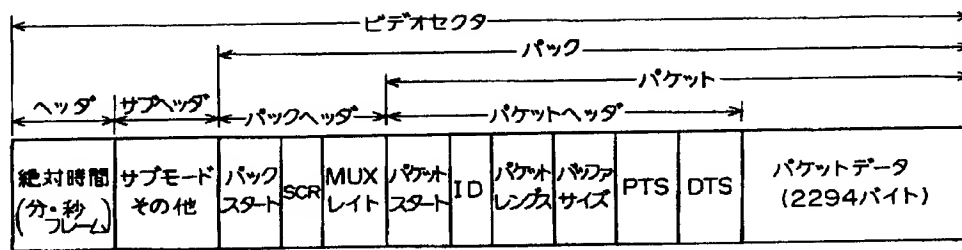 ビデオセクタ
パック
パケット
ヘッダ
サブヘッダ
パックヘッダ
パケットヘッダ
絶対時間
(分・秒
フレーム)
サブモード
その他
パック
スタート
SCR
MUX
レイト
パケット
スタート
ID
パケット
レングス
バッファ
サイズ
PTS
DTS
パケットデータ
(2294バイト)